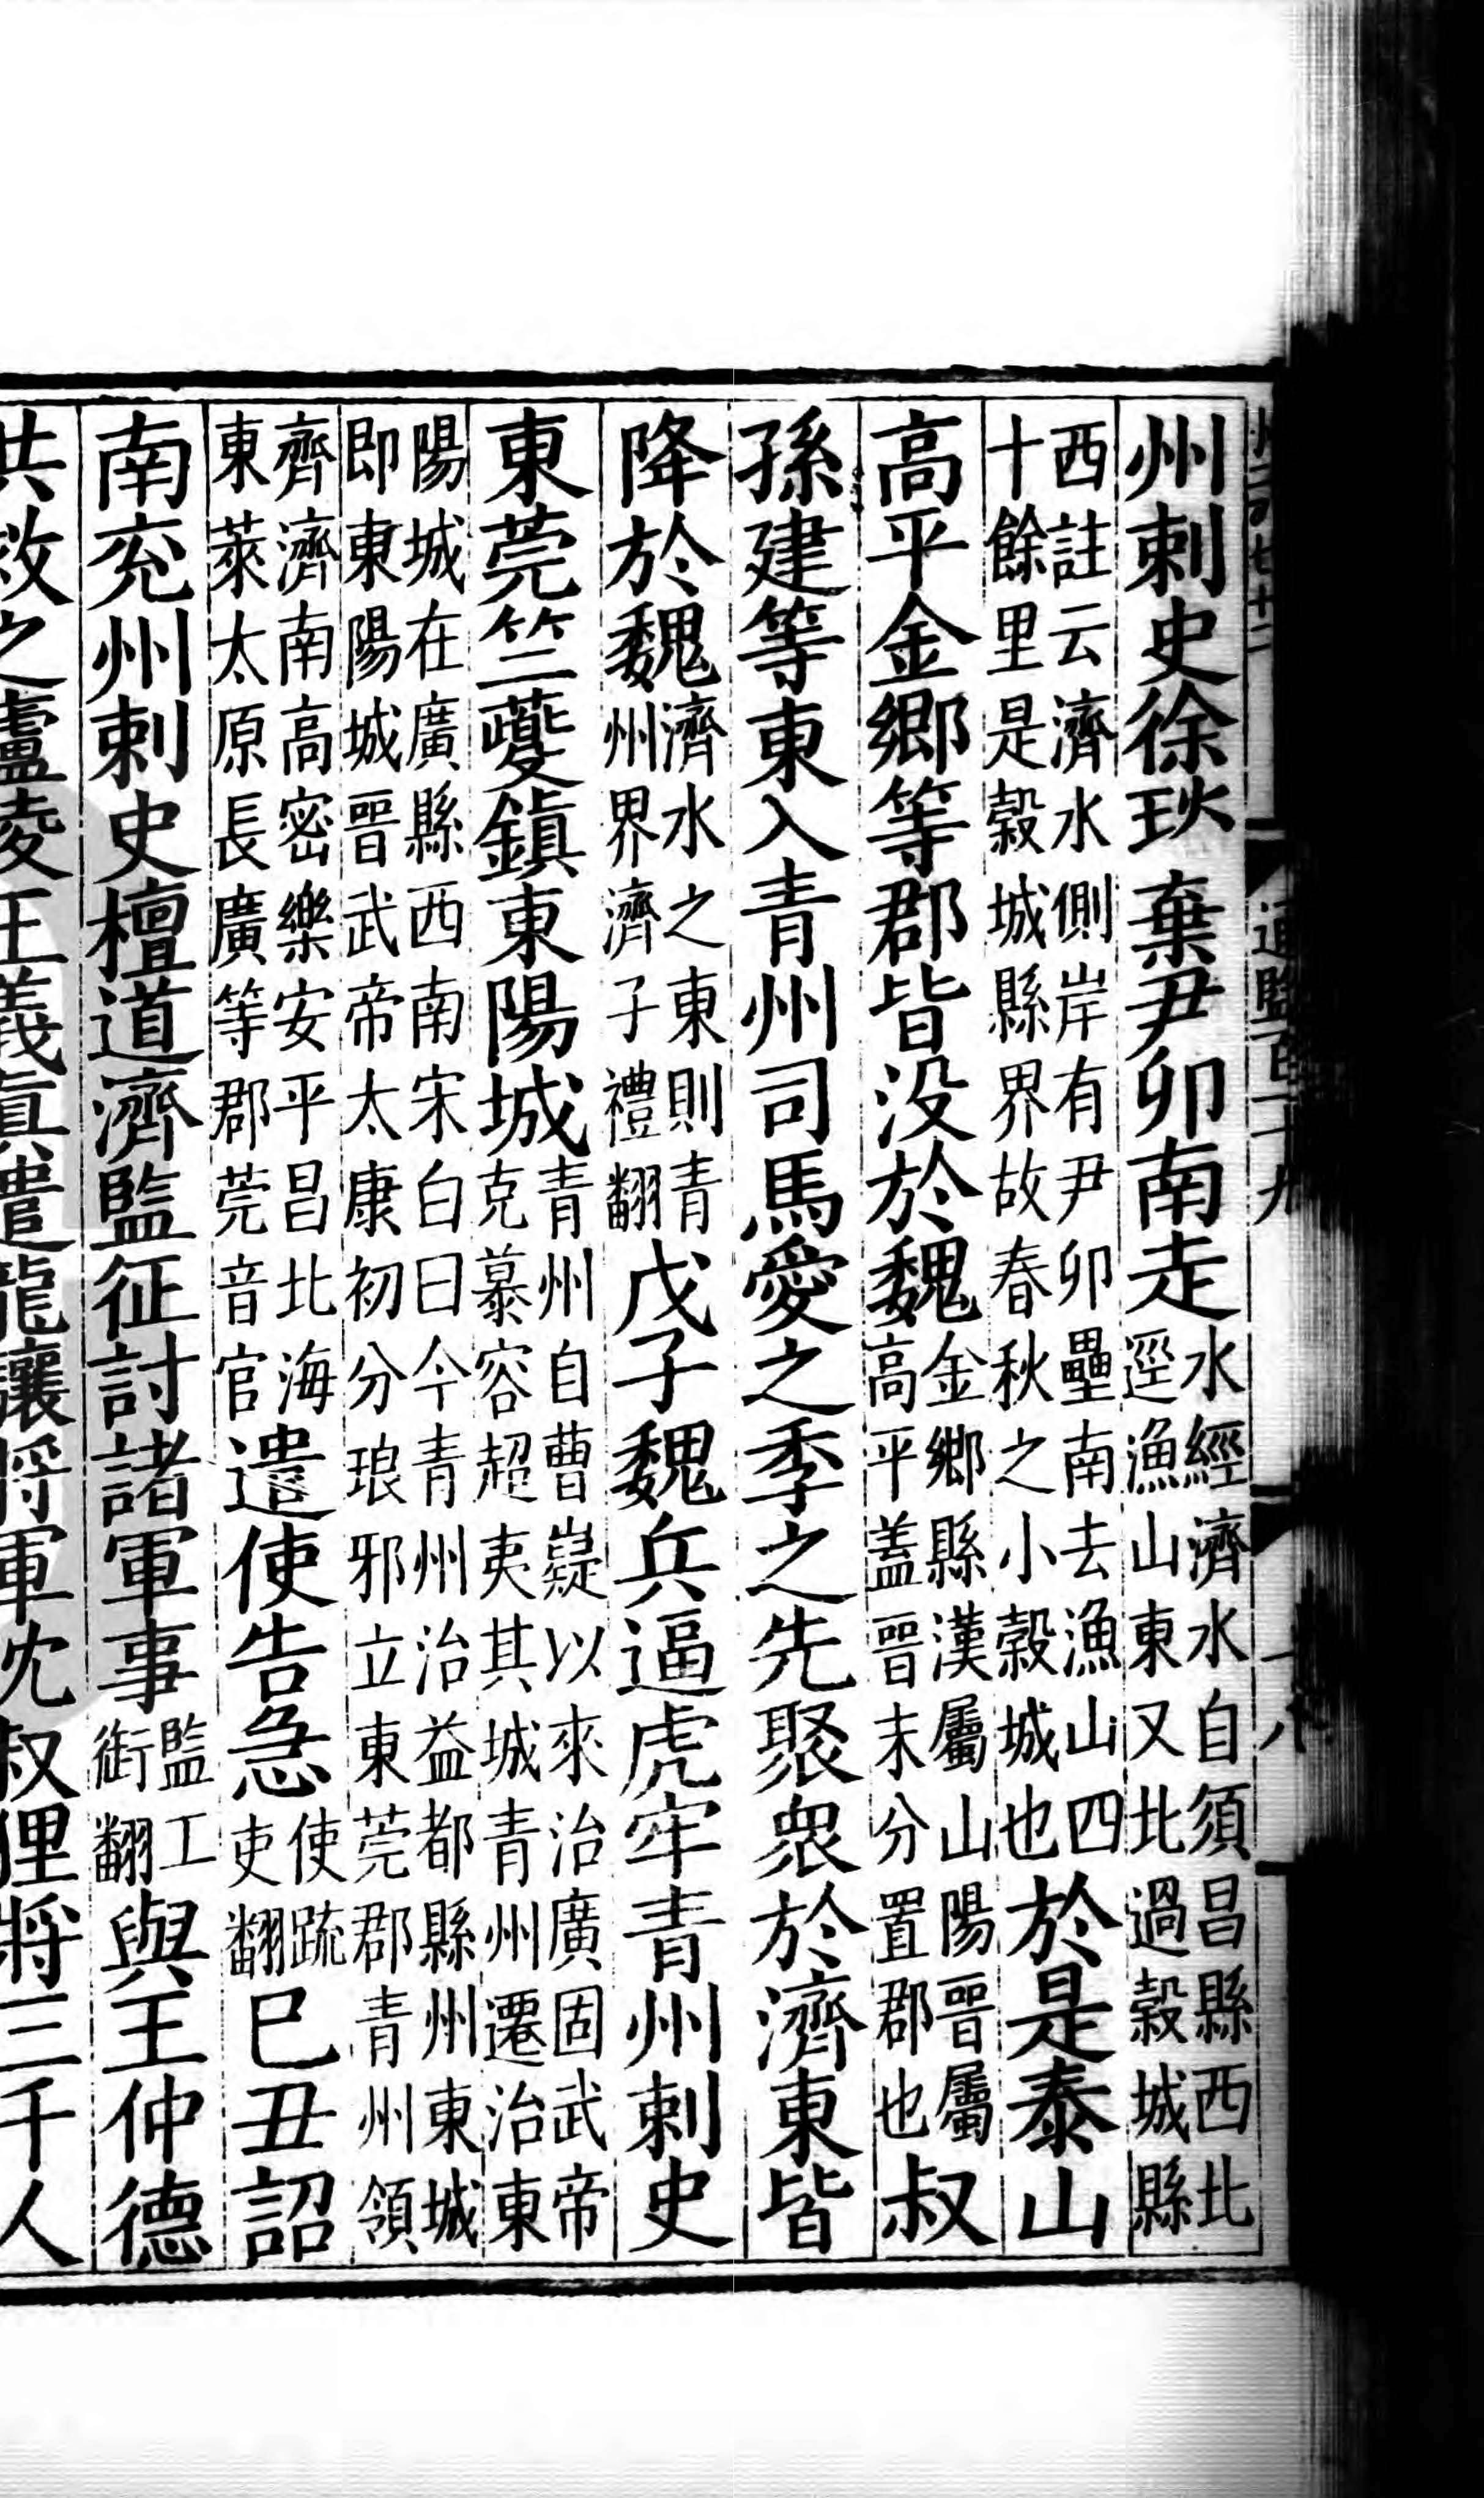 通鑑百一十九 十八
州刺史徐琰棄尹卯南走水經濟水自須昌縣西北逕漁山東又北過穀城縣
西註云濟水側岸有尹卯壘南去漁山四十餘里是穀城縣界故春秋之小穀城也於是泰山
高平金鄉等郡皆没於魏金鄉縣漢屬山陽晉屬高平蓋晉末分置郡也叔
孫建等東入青州司馬愛之季之先聚衆於濟東皆
降於魏濟水之東則青州界濟子禮翻戊子魏兵逼虎牢青州刺史
東莞竺夔鎮東陽城青州自曹嶷以來治廣固武帝克慕容超夷其城青州遷治東
陽城在廣縣西南宋白曰今青州治益都縣州東城即東陽城晉武帝太康初分琅邪立東莞郡青州領
齊濟南高密樂安平昌北海東萊太原長廣等郡莞音官遣使告急使疏吏翻巳丑詔
南兖州刺史檀道濟監征討諸軍事監工銜翻與王仲德
共救之廬陵王義真遣龍驤將軍沈叔狸將三千人